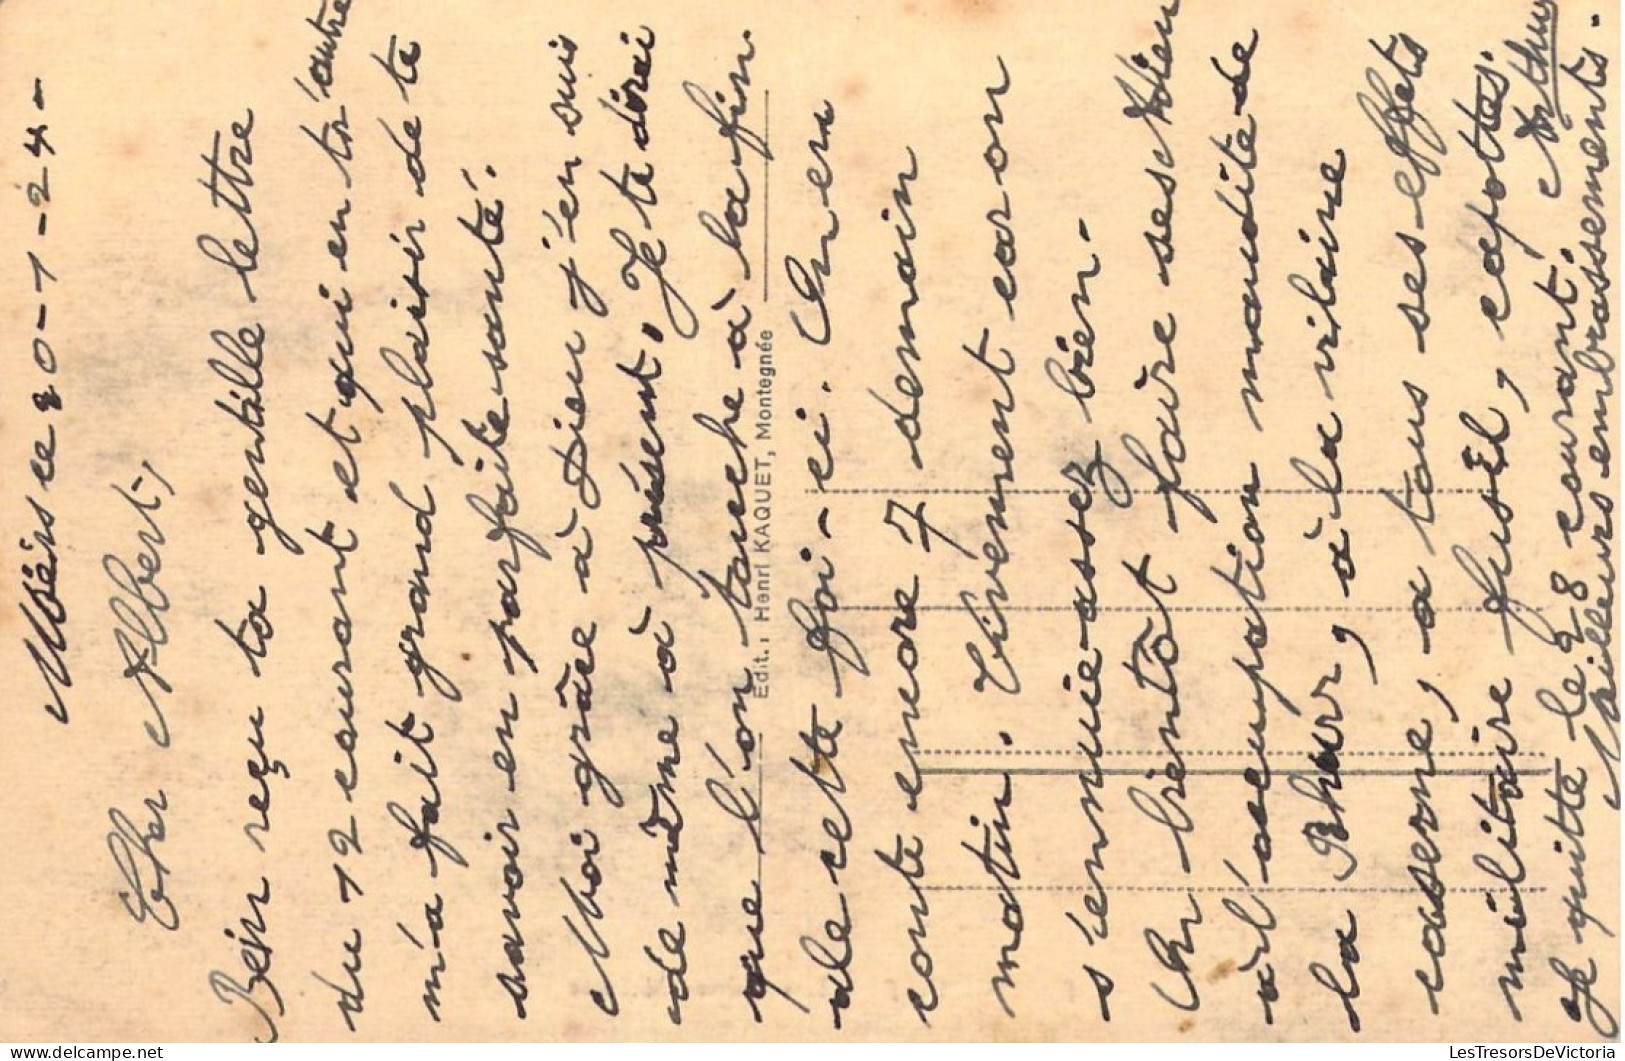 Moers ce 20-1-24-
Cher Albert,
Bein reçu ta gentille lettre
du 12 courant et qui en tr'autre
m'a fait grand plaisir de te
savoir en parfaite santé.
Moi grâce à Dieu j'en suis
de même à présent. Je te dirai
que l'on touche à la fin.
de cette foi-ci. On en
conte encore 7 demain
matin. Vivement car on
s'ennuie assez bien.
On bientôt faire ses adieu
à l'occupation maudite de
la Rhur, à la vilaine
caserne, a tous ses effets
militaire fusil, capottes.
Je quitte le 28 courant. Arthur
Meilleurs embrassements.
Edit., Henri KAQUET, Montegnée
LesTresorsDeVictoria